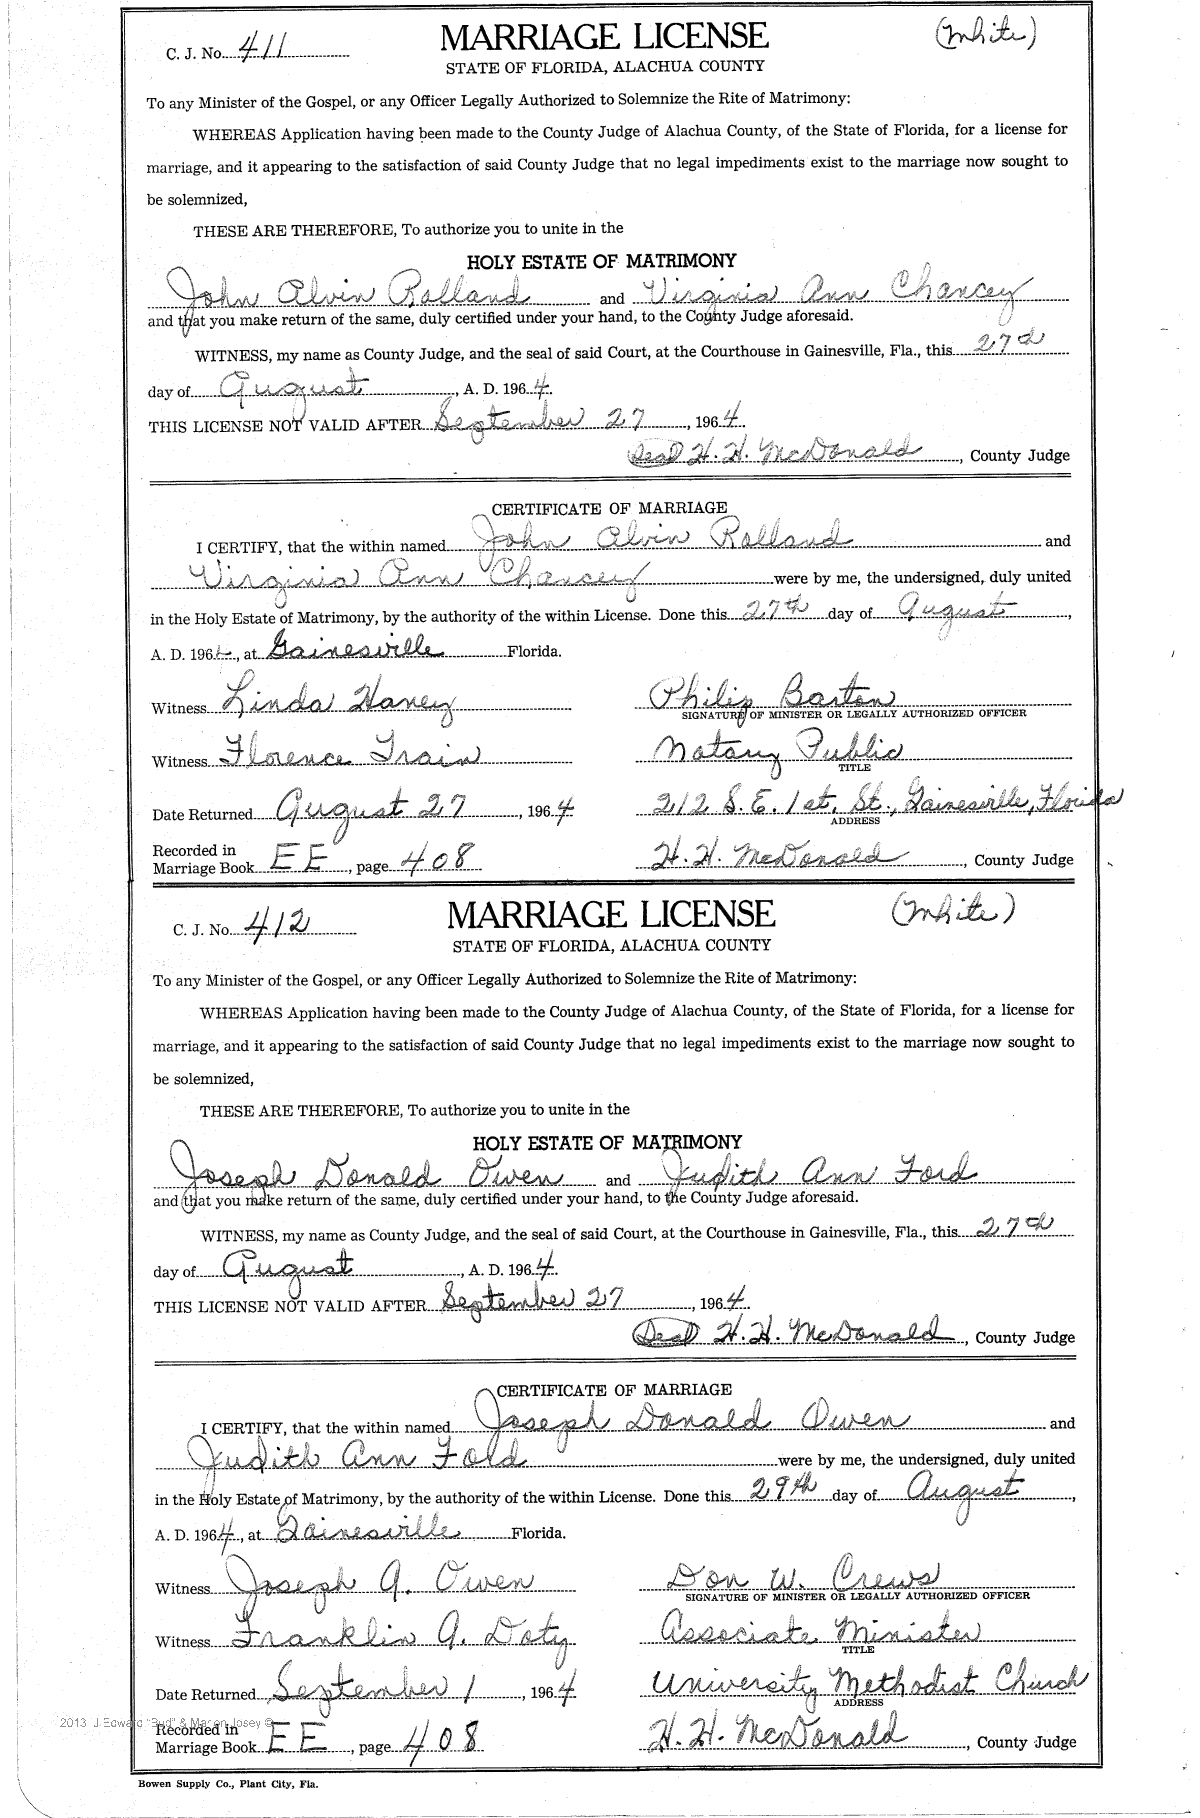 C. J. No. 411 MARRIAGE LICENSE (White)
STATE OF FLORIDA, ALACHUA COUNTY
To any Minister of the Gospel, or any Officer Legally Authorized to Solemnize the Rite of Matrimony:
WHEREAS Application having been made to the County Judge of Alachua County, of the State of Florida, for a license for
marriage, and it appearing to the satisfaction of said County Judge that no legal impediments exist to the marriage now sought to
be solemnized,
THESE ARE THEREFORE, To authorize you to unite in the
HOLY ESTATE OF MATRIMONY
John Alvin Rolland and Virginia Ann Chancey
and that you make return of the same, duly certified under your hand, to the County Judge aforesaid.
WITNESS, my name as County Judge, and the seal of said Court, at the Courthouse in Gainesville, Fla., this 27th
day of August, A. D. 1964.
THIS LICENSE NOT VALID AFTER September 27, 1964.
Seal H. H. McDonald, County Judge
CERTIFICATE OF MARRIAGE
I CERTIFY, that the within named John Alvin Rolland and
Virginia Ann Chancey were by me, the undersigned, duly united
in the Holy Estate of Matrimony, by the authority of the within License. Done this 27th day of August,
A. D. 1964, at Gainesville Florida.
Witness Linda Haney Philip Barton
SIGNATURE OF MINISTER OR LEGALLY AUTHORIZED OFFICER
Witness Florence Train Notary Public
TITLE
Date Returned August 27, 1964 212 S. E. 1st. St., Gainesville, Florida
ADDRESS
Recorded in
Marriage Book EE, page 408 H. H. McDonald, County Judge
C. J. No. 412 MARRIAGE LICENSE (White)
STATE OF FLORIDA, ALACHUA COUNTY
To any Minister of the Gospel, or any Officer Legally Authorized to Solemnize the Rite of Matrimony:
WHEREAS Application having been made to the County Judge of Alachua County, of the State of Florida, for a license for
marriage, and it appearing to the satisfaction of said County Judge that no legal impediments exist to the marriage now sought to
be solemnized,
THESE ARE THEREFORE, To authorize you to unite in the
HOLY ESTATE OF MATRIMONY
Joseph Donald Owen and Judith Ann Ford
and that you make return of the same, duly certified under your hand, to the County Judge aforesaid.
WITNESS, my name as County Judge, and the seal of said Court, at the Courthouse in Gainesville, Fla., this 27th
day of August, A. D. 1964.
THIS LICENSE NOT VALID AFTER September 27, 1964.
Seal H. H. McDonald, County Judge
CERTIFICATE OF MARRIAGE
I CERTIFY, that the within named Joseph Donald Owen and
Judith Ann Fold were by me, the undersigned, duly united
in the Holy Estate of Matrimony, by the authority of the within License. Done this 29th day of August,
A. D. 1964, at Gainesville Florida.
Witness Joseph A. Owen Don W. Crews
SIGNATURE OF MINISTER OR LEGALLY AUTHORIZED OFFICER
Witness Franklin A. Doty Associate Minister
TITLE
Date Returned September 1, 1964 University Methodist Church
ADDRESS
2013 J. Edward "Bud" & Marion Josey ©
Recorded in
Marriage Book EE, page 408 H. H. McDonald, County Judge
Bowen Supply Co., Plant City, Fla.